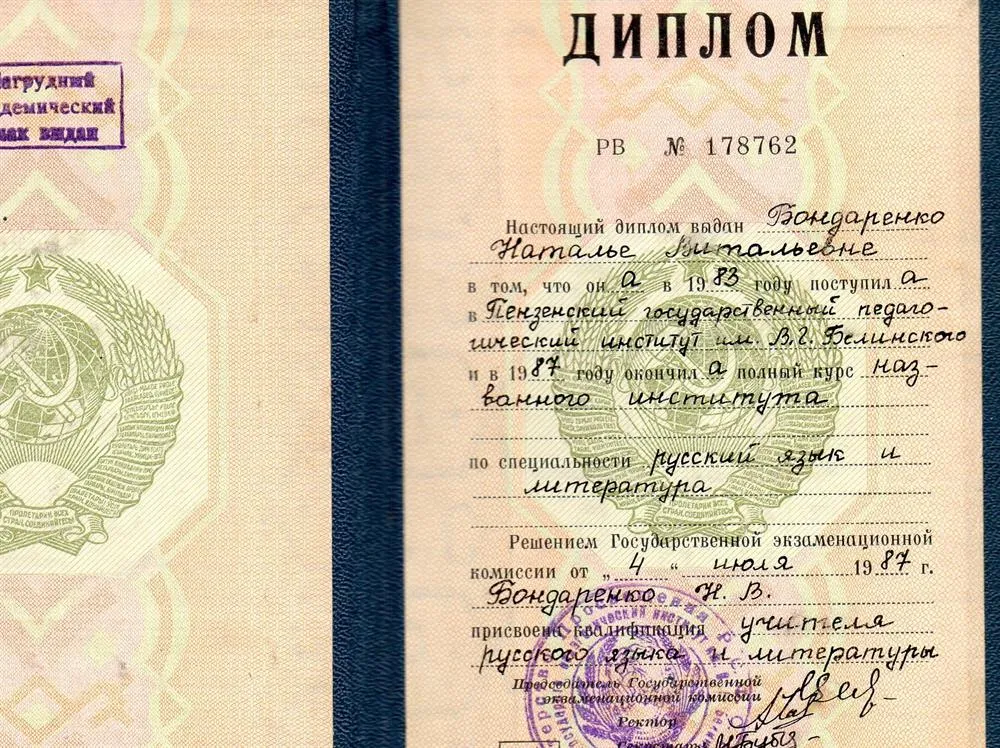 Нагрудный
академический
знак выдан
ДИПЛОМ
РВ № 178762
Настоящий диплом выдан Бондаренко
Наталье Витальевне
в том, что он а в 1983 году поступил а
в Пензенский государственный педаго-
гический институт им. В.Г. Белинского
и в 1987 году окончил а полный курс наз-
ванного института
по специальности русский язык и
литература
Решением Государственной экзаменационной
комиссии от „ 4 “ июля 1987 г.
Бондаренко Н. В.
присвоена квалификация учителя
русского языка и литературы
Председатель Государственной
экзаменационной комиссии
Ректор
Секретарь
ПРОЛЕТАРИИ ВСЕХ
СТРАН, СОЕДИНЯЙТЕСЬ!